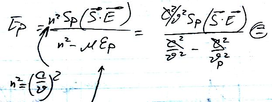 E_p = n² S_p (S⃗·E⃗) / (n² - μ ε_p) = (c²/ϑ²) S_p (S⃗·E⃗) / (c²/ϑ² - c²/ϑ_p²) =
n² = (c/ϑ)²